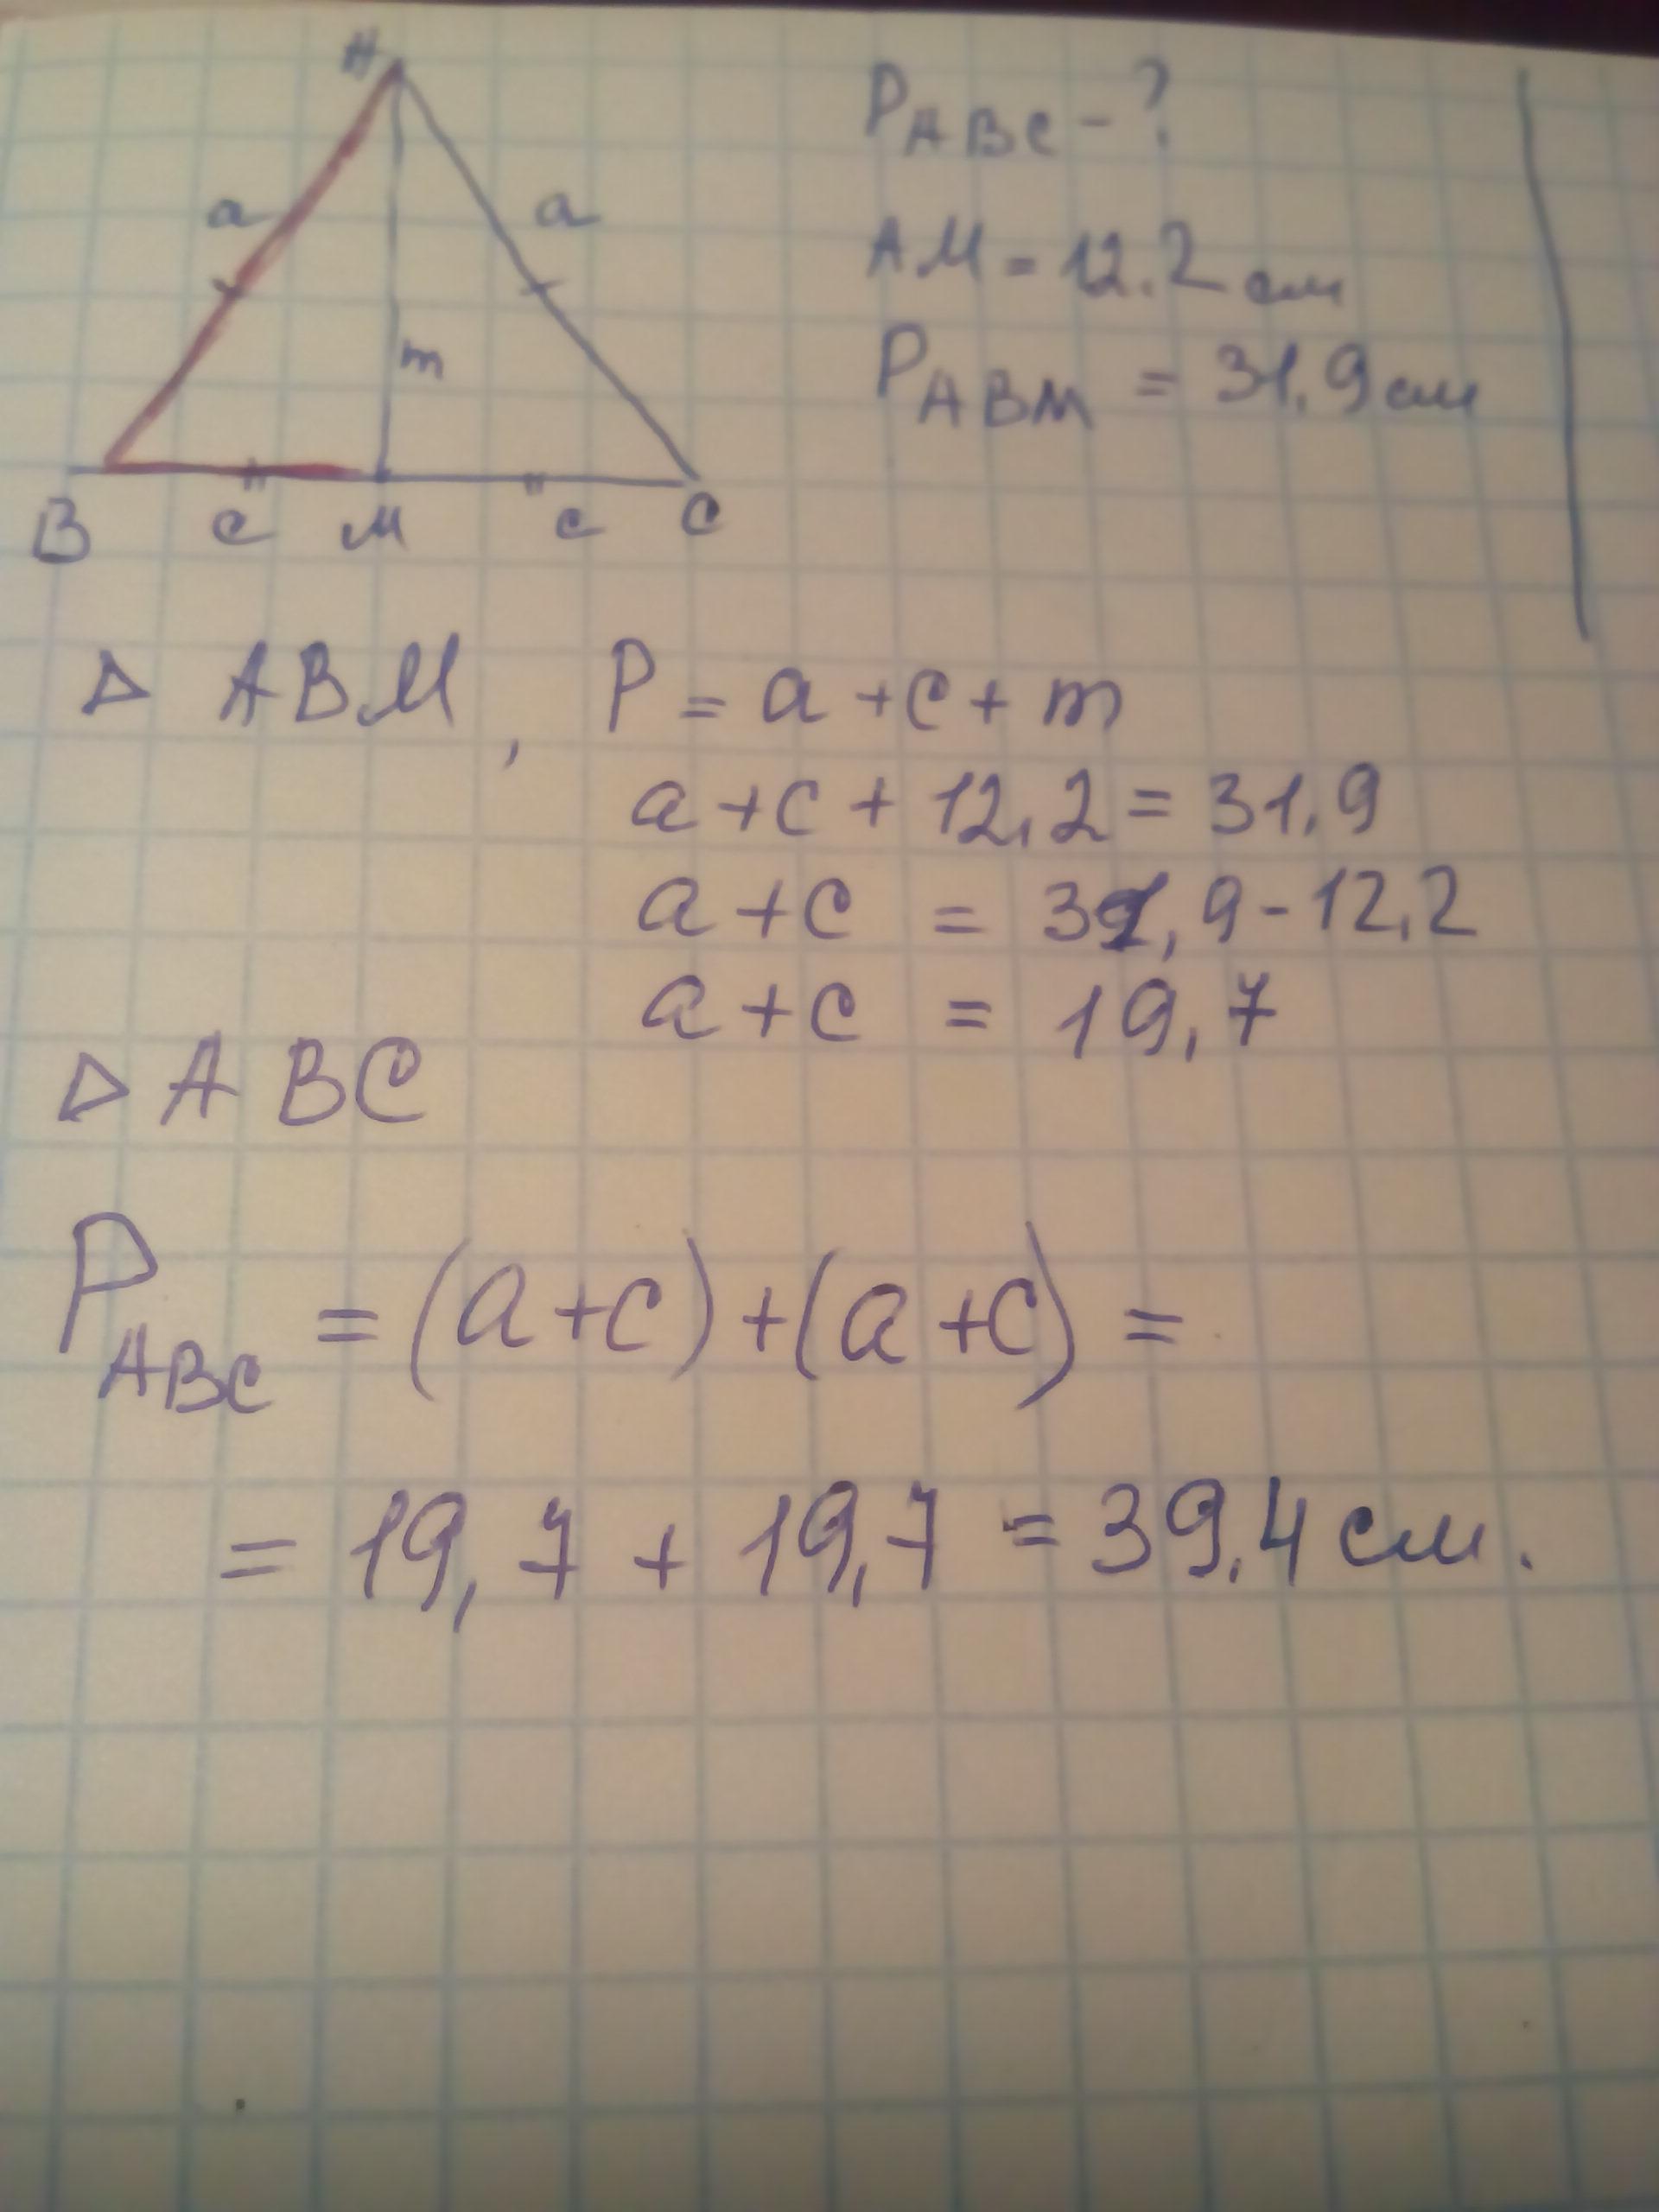 A
a
a
m
B
c
M
c
C
P ABC - ?
AM = 12.2 см
P ABM = 31,9 см
△ ABM, P = a + c + m
a + c + 12,2 = 31,9
a + c = 31,9 - 12,2
a + c = 19,7
△ ABC
P ABC = (a + c) + (a + c) =
= 19,7 + 19,7 = 39,4 см.